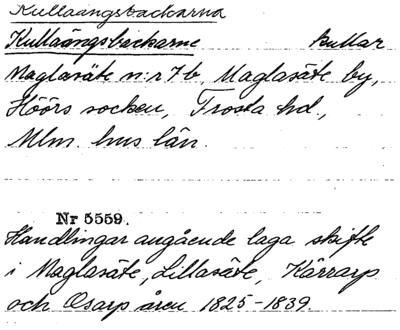 Kullaängsbackarna
Kullaängsbackarne kullar
Maglasäte n:r 7b, Maglasäte by,
Höörs socken, Frosta hd.,
Mlm. hus län.
Nr 5559.
Handlingar angående laga skifte
i Maglasäte, Lillasäte, Kärrarp
och Osarp åren 1825-1839.